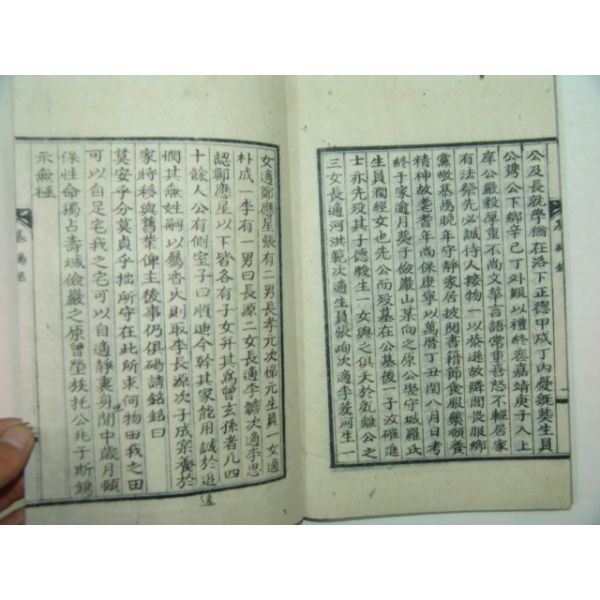 公及長就學猶在洛下正德甲戌丁內憂繼葬生員
公鵁公下鄉辛巳丁外艱以禮終喪嘉靖庚子入上
庠公嚴毅厚重不尚文華言語常重喜怒不輕居家
有法祭先必誠待人接物一以恭遜故隣閭畏服鄉
黨敬慕焉晚年守靜家居披閱書籍節食服藥頤養
精神故老耆年尚保康寧以萬曆丁丑閏八月日考
終于家逾月葬于儉巖山某向之原公娶守城羅氏
生員潤經女也先公而歿墓在公墓後一子汝確進
士亦先歿其子德駿生一女與之俱夭於乱離公之
三女長適河洪範次適生員張峋次適李菱河生一
女適鄭應星張有二男長孝元次悌元生員一女適
朴成一李有一男曰長源二女長適李 次適李思
認鄭應星以下皆各有子女幷其寫曾玄孫者凡四
十餘人公有側室子曰順迪今幹其家能用誠於追遠
憫其無姓嗣以屬香火則取李長源次子成 養於
家時移與舊業俾主後事仍俱碣請銘銘曰
莫安乎分莫貞乎拙所守在此所求何物田我之田
可以自足宅我之宅可以自適靜裏身閒中歲月頤
保性命獨占壽域儉巖之原 瑩族托公北于斯錫
示無極